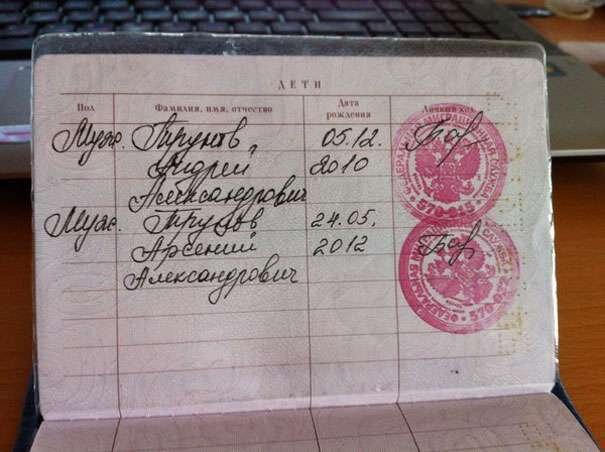 ДЕТИ
Пол Фамилия, имя, отчество Дата рождения Личный код
Муж. Трунов 05.12.
Андрей 2010
Александрович
Муж. Трунов 24.05.
Арсений 2012
Александрович
ФЕДЕРАЛЬНАЯ МИГРАЦИОННАЯ СЛУЖБА
ФЕДЕРАЛЬНАЯ МИГРАЦИОННАЯ СЛУЖБА
570-022